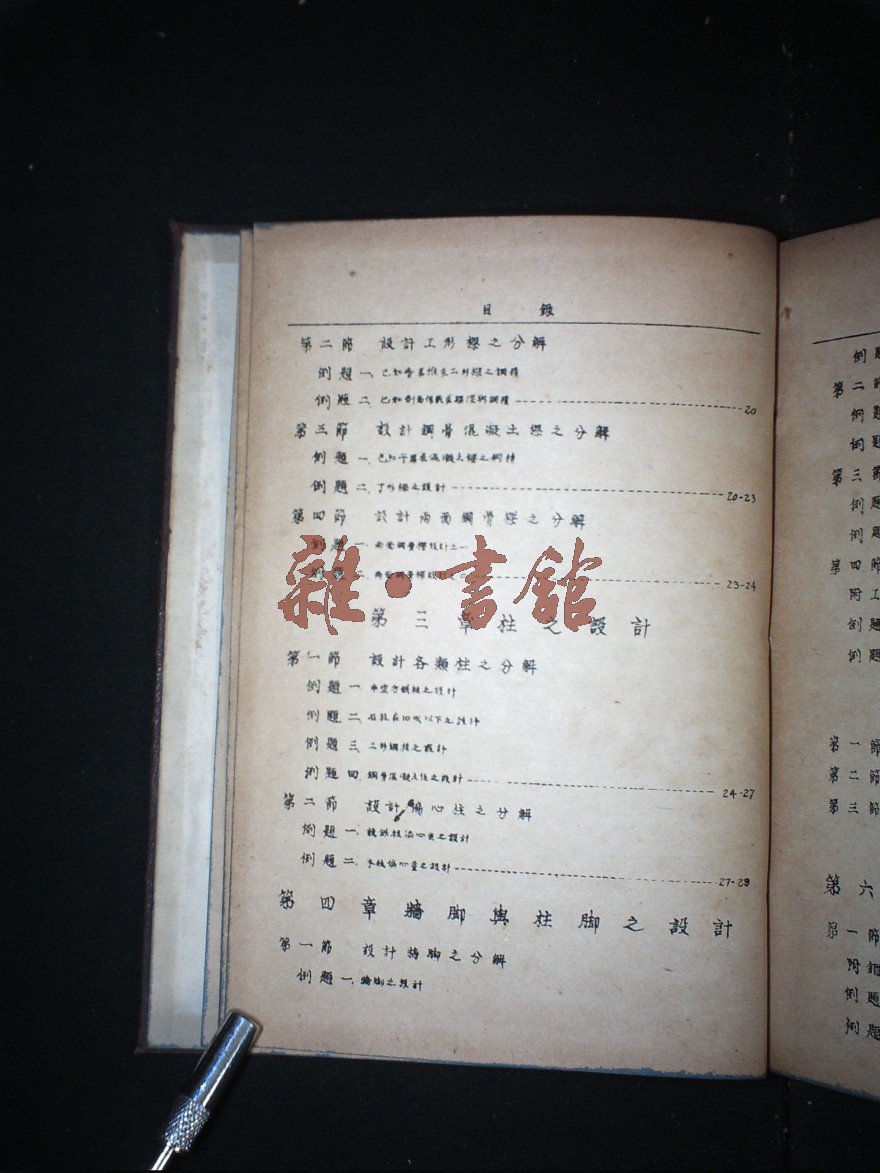 目 錄
第二節 設計工形樑之分解
例題一
例題二 20
第三節 設計鋼骨混凝土樑之分解
例題一
例題二、丁形樑之設計 20-23
第四節 設計兩面鋼骨樑之分解
例題一、兩面鋼骨樑設計之一
例題二、兩面鋼骨樑設計之二 23-24
雜·書館
第三章 柱之設計
第一節 設計各類柱之分解
例題一、中空方鐵柱之設計
例題二、以下之設計
例題三、工形鋼柱之設計
例題四、鋼骨混凝土柱之設計 24-27
第二節 設計偏心柱之分解
例題一、之設計
例題二、之設計 27-29
第四章 牆脚與柱脚之設計
第一節 設計牆脚之分解
例題一、牆脚之設計
例題
第二節
例題
例題
第三節
例題
例題
第四節
附工
例題
例題
第一節
第二節
第三節
第六
第一節
附
例題
例題